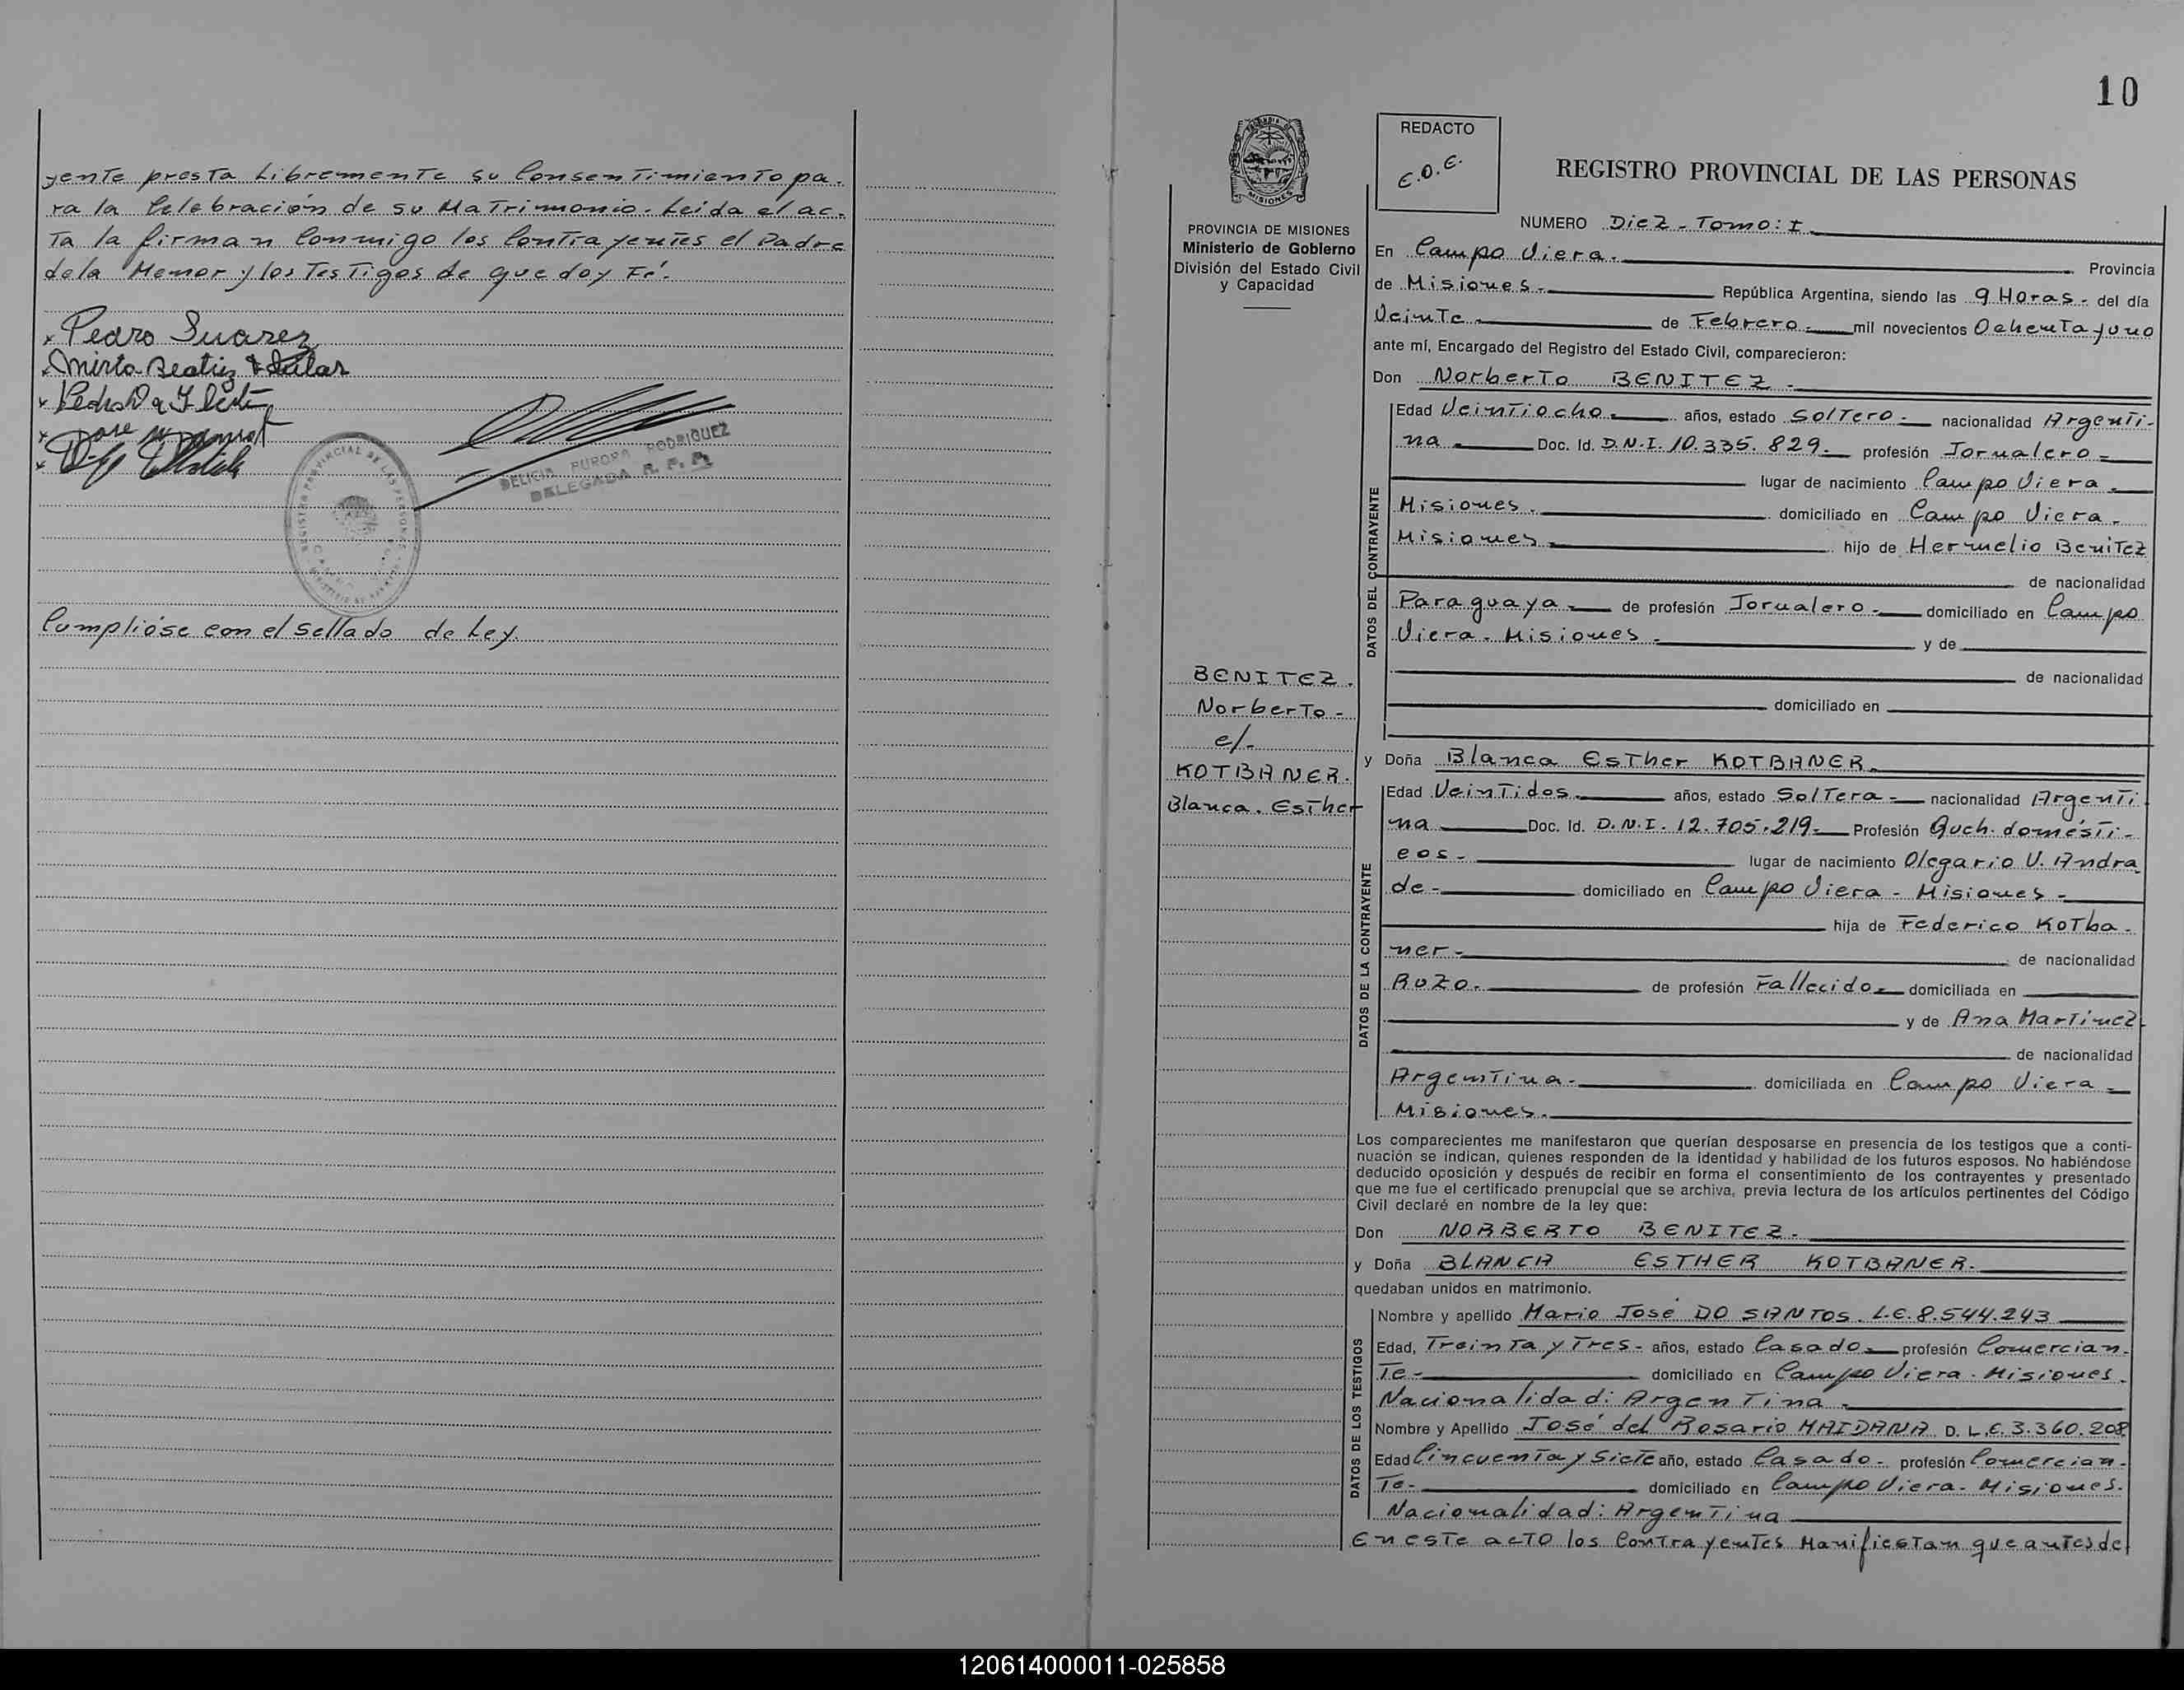 yente presta Libremente su Consentimiento pa-
ra la Celebración de su Matrimonio. Leida el ac-
Ta la firman Conmigo los Contrayentes el Padre
dela Menor y los Testigos de que doy Fé.
Pedro Suarez
Mirta Beatriz
DELICIA AURORA RODRIGUEZ
DELEGADA R. P. P.
Cumplióse con el Sellado de Ley.
10
PROVINCIA DE MISIONES
Ministerio de Gobierno
División del Estado Civil
y Capacidad
BENITEZ.
Norberto-
c/-
KOTBANER.
Blanca. Esther
REDACTO
E.O.E.
REGISTRO PROVINCIAL DE LAS PERSONAS
NUMERO Diez - Tomo: I
En Campo Viera. Provincia
de Misiones.- República Argentina, siendo las 9 Horas - del día
Veinte de Febrero mil novecientos Ochenta y uno
ante mí, Encargado del Registro del Estado Civil, comparecieron:
Don Norberto BENITEZ -
DATOS DEL CONTRAYENTE
Edad Veintiocho años, estado Soltero- nacionalidad Argenti-
na Doc. Id. D.N.I. 10.335.829.- profesión Jornalero-
lugar de nacimiento Campo Viera.
Misiones. domiciliado en Campo Viera.
Misiones hijo de Hermelio Benitez
de nacionalidad
Paraguaya de profesión Jornalero- domiciliado en Campo
Viera - Misiones - y de
de nacionalidad
domiciliado en
y Doña Blanca Esther KOTBANER
DATOS DE LA CONTRAYENTE
Edad Veintidos años, estado Soltera- nacionalidad Argenti
na Doc. Id. D.N.I. 12.705.219- Profesión Quch. domésti-
cos- lugar de nacimiento Olegario V. Andra
de- domiciliado en Campo Viera - Misiones -
hija de Federico Kotba-
ner- de nacionalidad
Ruzo. de profesión Fallecido- domiciliada en
y de Ana Martinez
de nacionalidad
Argentina- domiciliada en Campo Viera -
Misiones.
Los comparecientes me manifestaron que querían desposarse en presencia de los testigos que a conti-
nuación se indican, quienes responden de la identidad y habilidad de los futuros esposos. No habiéndose
deducido oposición y después de recibir en forma el consentimiento de los contrayentes y presentado
que me fue el certificado prenupcial que se archiva, previa lectura de los artículos pertinentes del Código
Civil declaré en nombre de la ley que:
Don NORBERTO BENITEZ -
y Doña BLANCA ESTHER KOTBANER.
quedaban unidos en matrimonio.
DATOS DE LOS TESTIGOS
Nombre y apellido Mario José DO SANTOS. L.E. 8.544.243
Edad, Treinta y Tres- años, estado Casado- profesión Comercian-
Te- domiciliado en Campo Viera - Misiones.
Nacionalidad: Argentina
Nombre y Apellido José del Rosario MAIDANA D. L.E. 3.360.208
Edad Cincuenta y Siete año, estado Casado- profesión Comercian-
Te- domiciliado en Campo Viera - Misiones.
Nacionalidad: Argentina
En este acto los Contrayentes Manifiestan que antes de
120614000011-025858